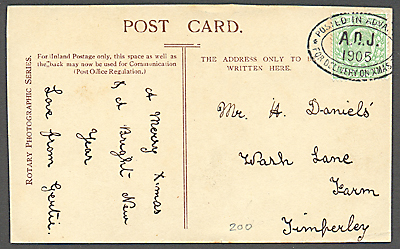 POST CARD.
For Inland Postage only, this space as well as
the Back may now be used for Communication
(Post Office Regulation.)
THE ADDRESS ONLY TO BE
WRITTEN HERE.
POSTED IN ADVANCE
A.D.J.
1905
FOR DELIVERY ON XMAS
ROTARY PHOTOGRAPHIC SERIES.
A Merry Xmas
& A Bright New
Year
Love from Gertie.
Mr. A. Daniels'
Wash Lane
Farm
Timperley
200